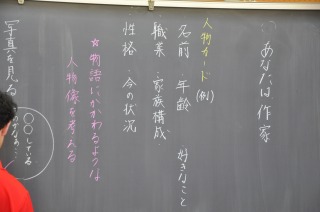 あなたは作家
人物カード(例)
名前 年齢 好きなこと
職業 家族構成
性格 今の状況
☆物語にかかわるような
人物像を考える
写真を見る
〇〇している